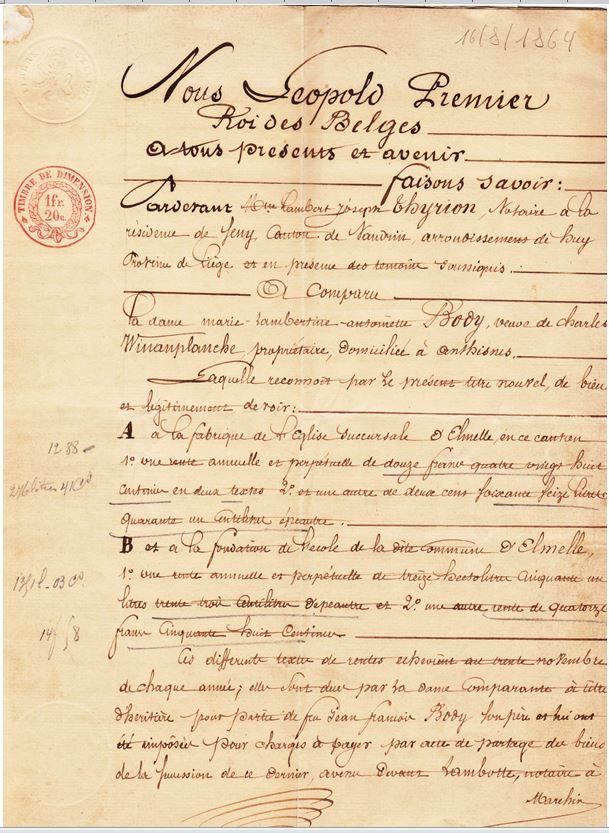 16/8/1864
Nous Leopold Premier
Roi des Belges
A tous présents et avenir
faisons savoir :
TIMBRE DE DIMENSION
1 fr.
20 c.
Pardevant Mtre Lambert Joseph Thyrion, Notaire à la
résidence de Seny, Canton de Nandrin, arrondissement de huy
Province de Liège et en présence des temoins soussignés.
A Comparu
La dame marie-Lambertine-antoinette Body, veuve de charles
Winanplanche, propriétaire, domiciliée à anthisnes.
Laquelle reconnoit par le présent titre nouvel, de bien
et légitimement devoir :
A à la fabrique de l'Eglise succursale d'Elmelle, en ce canton
1° une rente annuelle et perpétuelle de douze francs quatre vingt huit
Centimes en deux textes 2° et une autre de deux cent soixante seize litres
quarante un Centilitres épeautre.
12 88
276 litres 41 Cos
B et à la fondation de l'école de la dite commune d'Elmelle,
1° une rente annuelle et perpétuelle de treize hectolitres cinquante un
litres trente trois centilitres d'épeautre et 2° une autre rente de quatorze
francs Cinquante huit Centimes.
14f 58
Ces différents textes de rentes echéoient au trente novembre
de chaque année; elles sont dues par la dame Comparante à titre
d'héritière pour partie de feu Jean francois Body son père et lui ont
été imposées pour charges à payer par acte de partage des biens
de la succession de ce dernier, avenu devant Lambotte, notaire à
Marchin